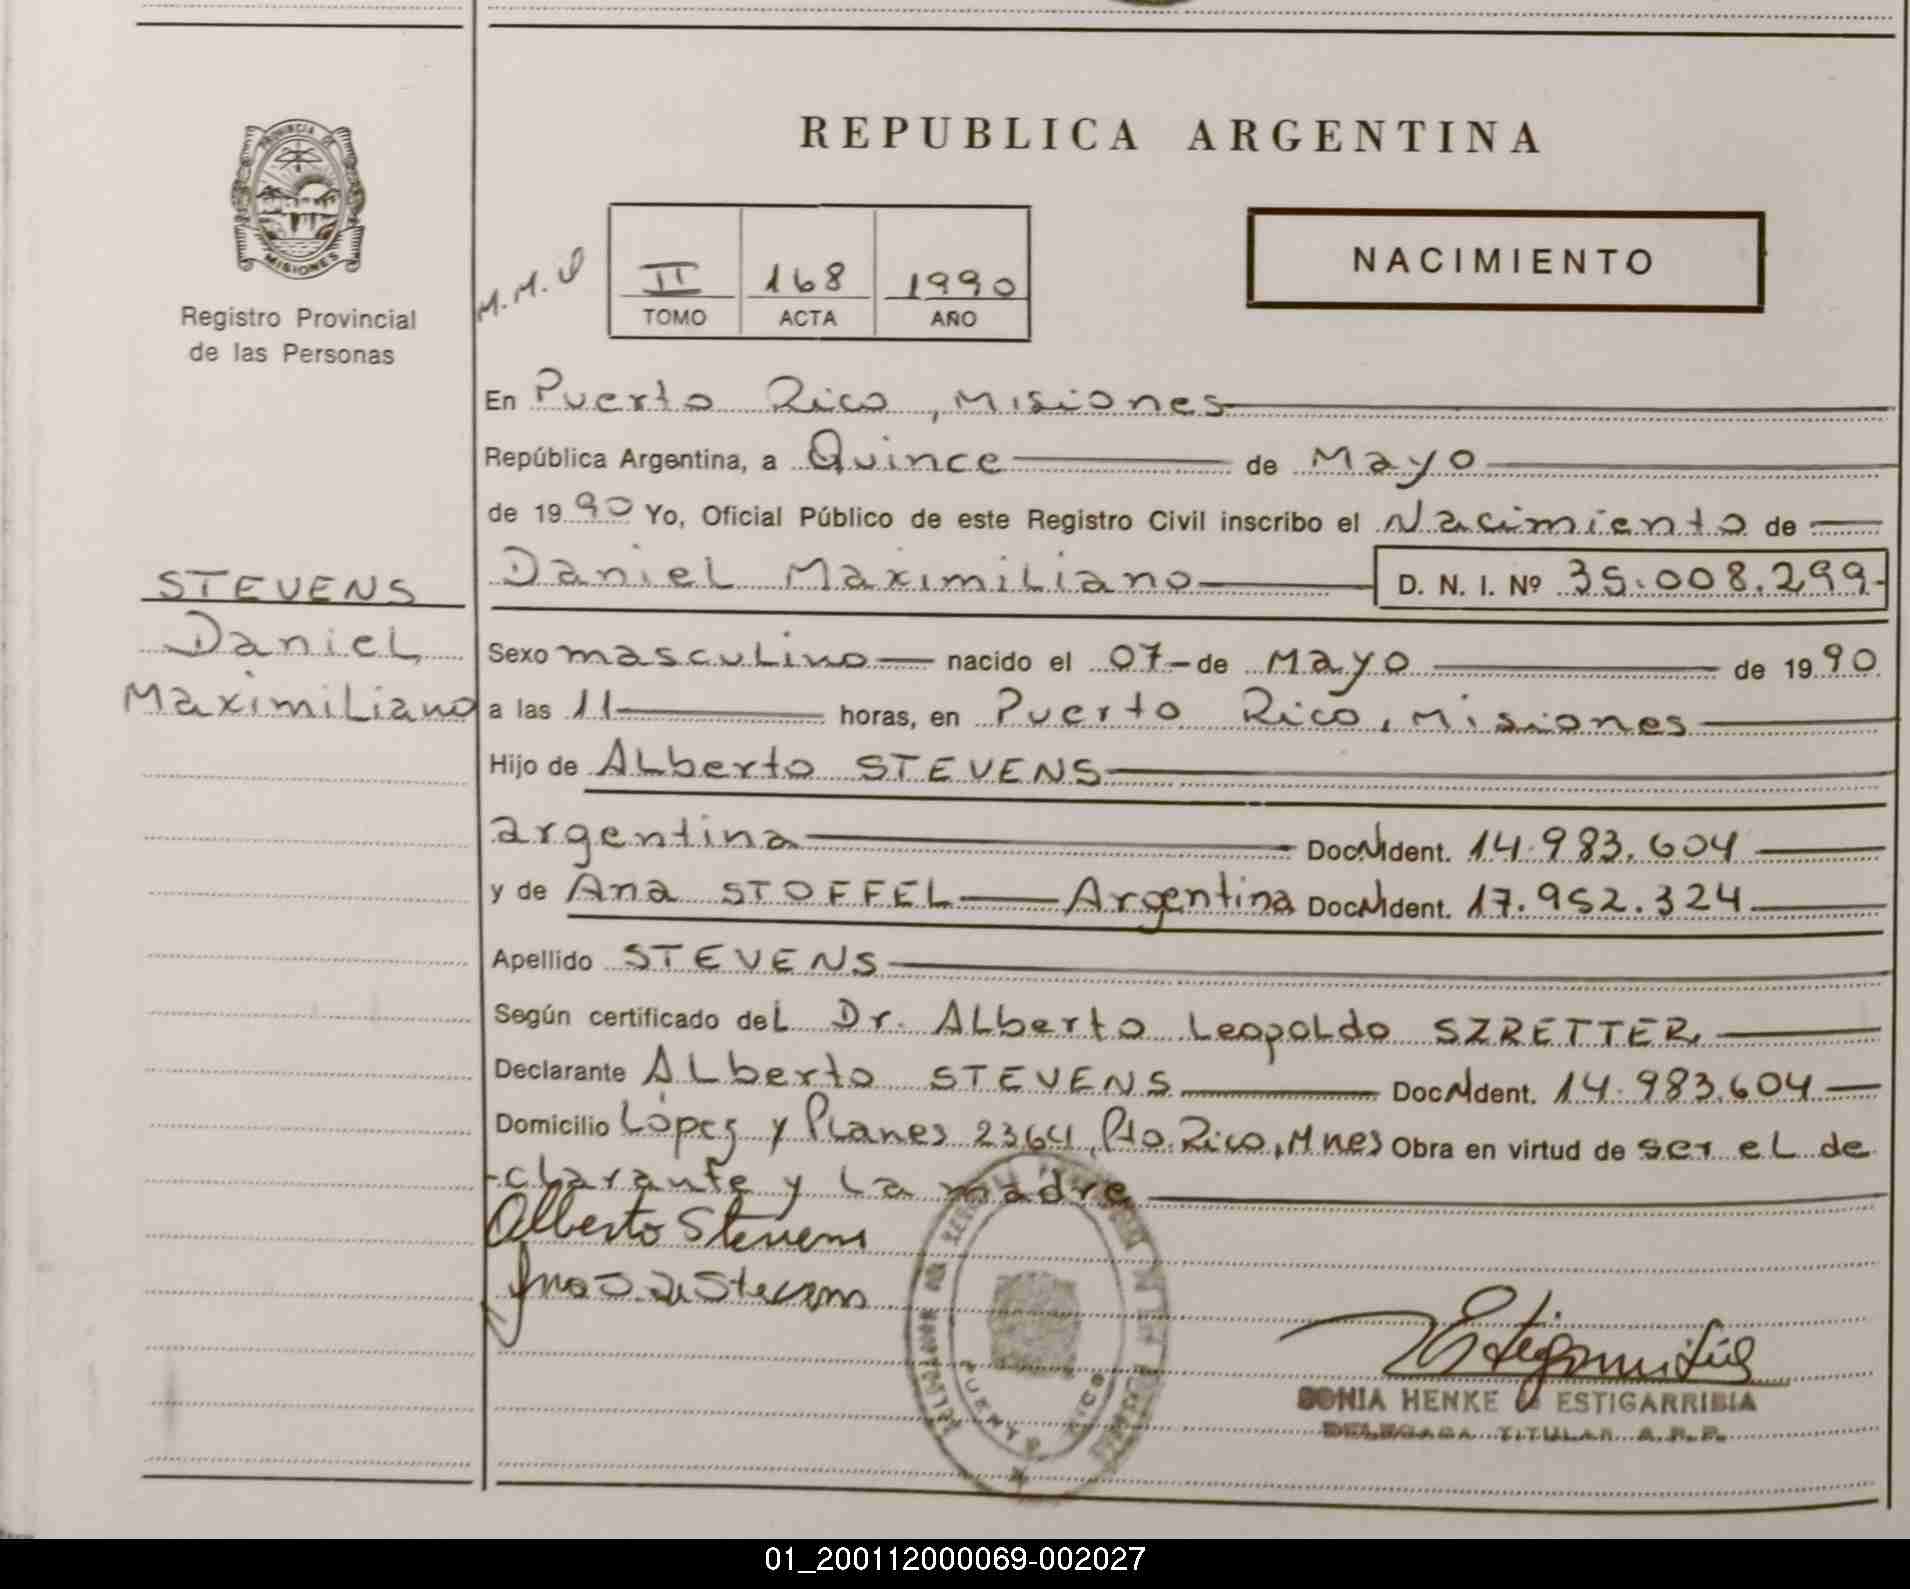 REPUBLICA ARGENTINA
PROVINCIA DE
MISIONES
Registro Provincial
de las Personas
M.M.
II 168 1990
TOMO ACTA AÑO
NACIMIENTO
En Puerto Rico, Misiones
República Argentina, a Quince de Mayo
de 1990 Yo, Oficial Público de este Registro Civil inscribo el Nacimiento de
Daniel Maximiliano D. N. I. Nº 35.008.299-
STEVENS
Daniel
Maximiliano
Sexo masculino nacido el 07-de Mayo de 1990
a las 11 horas, en Puerto Rico, Misiones
Hijo de Alberto STEVENS
argentina Doc.N.Ident. 14.983.604
y de Ana STOFFEL Argentina Doc.N.Ident. 17.952.324
Apellido STEVENS
Según certificado del Dr. Alberto Leopoldo SZRETTER
Declarante Alberto STEVENS Doc.N.Ident. 14.983.604
Domicilio López y Planes 2364, Pto. Rico, Mnes Obra en virtud de ser el de
-clarante y la madre
Alberto Stevens
Ana S. de Stevens
PUERTO RICO
SONIA HENKE ESTIGARRIBIA
DELEGADA TITULAR A.R.P.
01_200112000069-002027